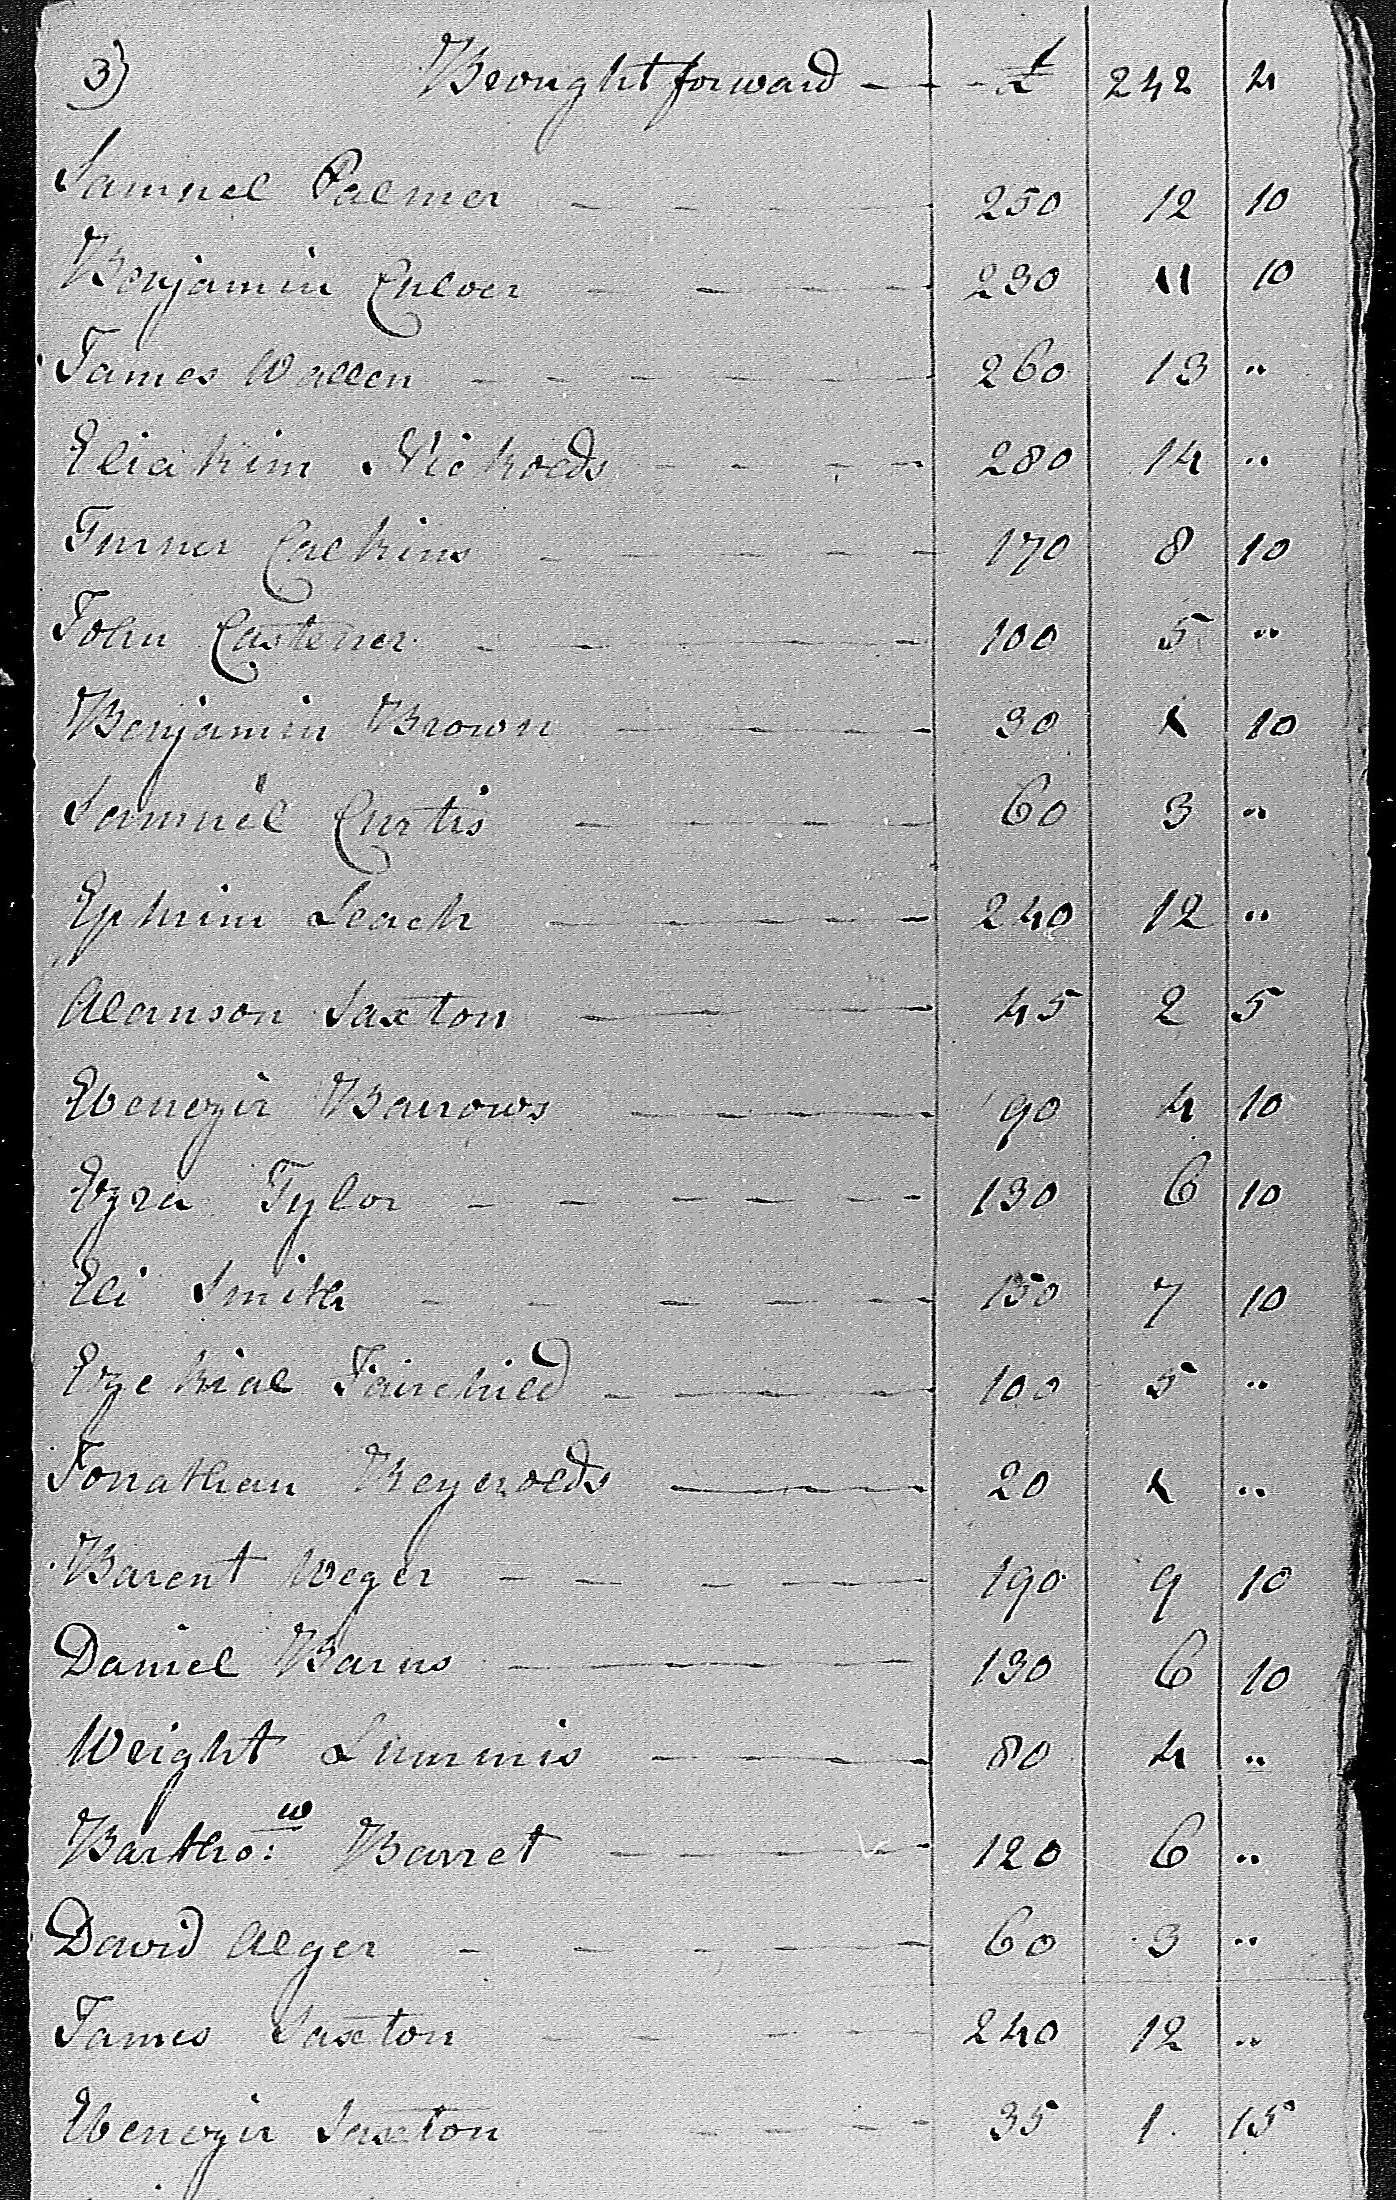 3) Brought forward - - - £ 242 4
Samuel Palmer - - - - - 250 12 10
Benjamin Culver - - - - 230 11 10
James Wallen - - - - - - 260 13 "
Eliakim Nickolds - - - - 280 14 "
Turner Calkins - - - - - 170 8 10
John Castener - - - - - 100 5 "
Benjamin Brown - - - - 30 1 10
Samuel Curtis - - - - - 60 3 "
Ephrim Leach - - - - - 240 12 "
Alanson Saxton - - - - 45 2 5
Ebenezir Barrows - - - - 90 4 10
Ezra Tylor - - - - - - 130 6 10
Eli Smith - - - - - - 150 7 10
Ezekial Fairchild - - - - 100 5 "
Jonathan Reynolds - - - 20 1 "
Barent Weger - - - - - 190 9 10
Daniel Barns - - - - - 130 6 10
Weight Lummis - - - - 80 4 "
Bartho:w Barret - - - - 120 6 "
David Alger - - - - - 60 3 "
James Saxton - - - - - 240 12 "
Ebenezir Saxton - - - - 35 1 15